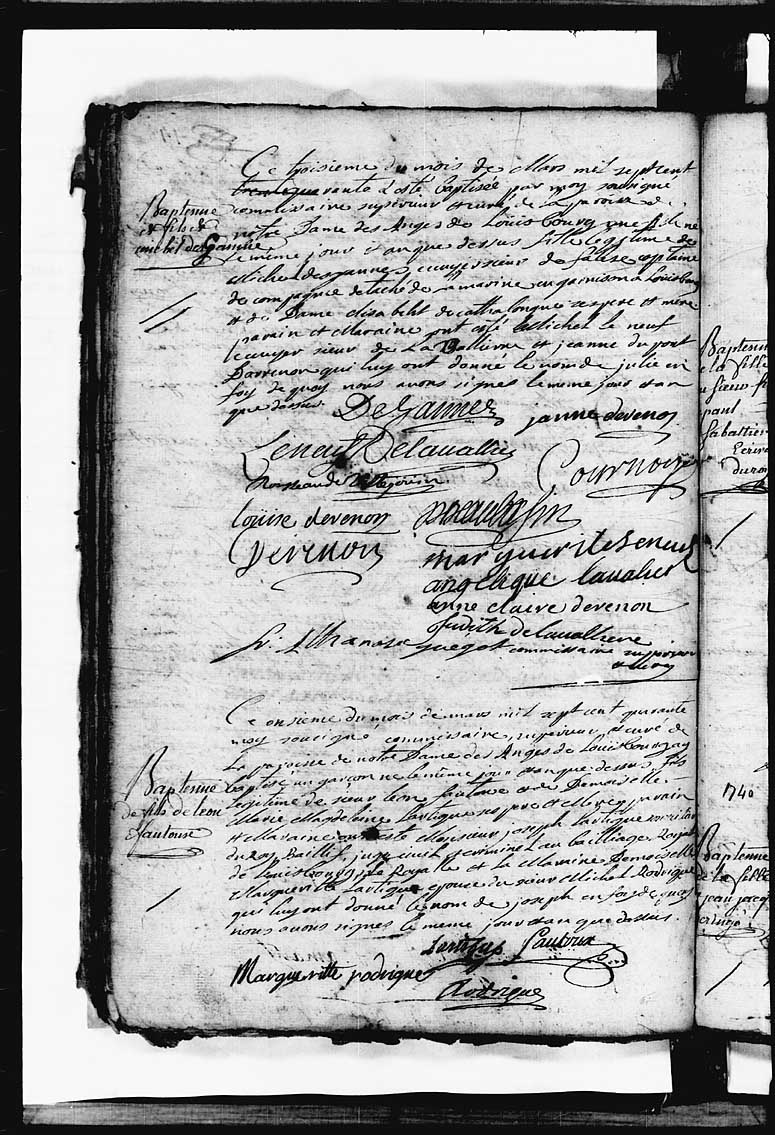 Baptemme
de fils de
michel deGanne
Ce troisieme du mois de Mars mil sept cent
quarente a esté baptisée par moy soussigné
commissaire superieur et curé de la paroisse de
notre Dame des Anges de Louisbourg une fille ne
le meme jour et an que dessus fille legitime de
Michel deganne ecuyer sieur de falaise capitaine
de compagnie détaché de la marine en garnison a Louisbourg
et de Dame elisabeht de catalongne ses pere et mere
parain et Maraine ont esté Michel le neuf
ecuyer sieur de La Vallierre et jeanne du pont
Duvenon qui luy ont donné le nom de julie en
foy de quoy nous avons signes le meme jour et an
que dessus
DeGannes janne devenon
Leneuf Delavallier
Cournoyer
louise devenon
Devenon
marguerite Leneuf
angelique lavalier
anne claire devenon
Judith delavallierre
fr. Athanase guegot commissaire superieur
et curé
Baptemme
de fils de leon
fautoux
Ce onsieme du mois de mars mil sept cent quarante
moy soussigné commissaire, superieur, et curé de
La paroisse de notre Dame des Anges de Louisbourg ay
baptisé un garcon ne le meme jour et an que dessus fils
Legitime de sieur leon fautoux et de Demoiselle
Marie Magdelaine Lartigue ses pere et Mere parain
et Maraine ont esté Monsieur joseph Lartigue conseiller
du Roy Baillif, juge civil et criminel au bailliage Royal
de Louisbourg isle Royalle et la Maraine Demoiselle
Marguerite Lartigue epouse du sieur Michel Rodrigue
qui luy ont donné le nom de joseph en foy de quoy
nous avons signes le meme jour et an que dessus.
Lartigue fautoux
Margueritte rodrigue
Rodrigue
Baptemme
de la fille
paul
sabattier
Ecrivain
du roy
1740
Baptemme
de la fille
jean jacq